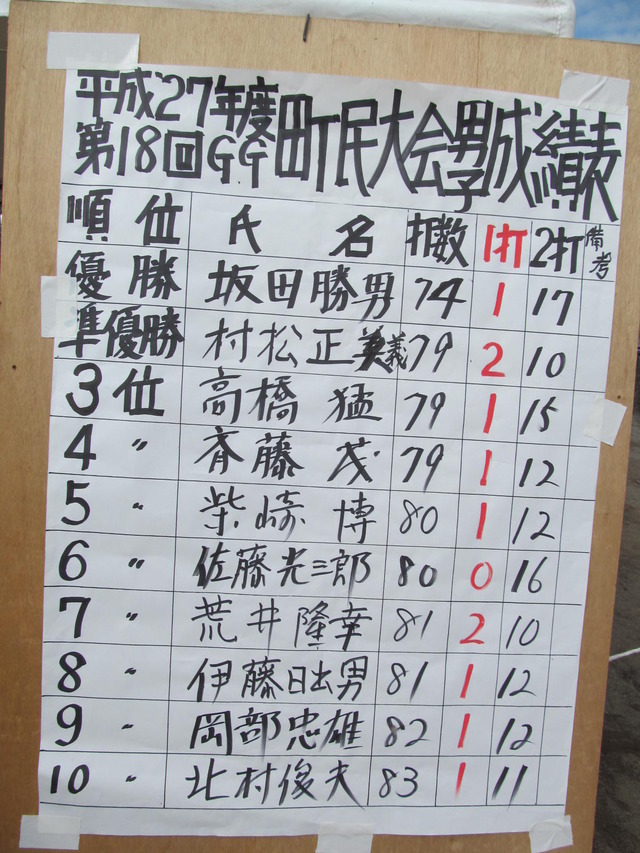 平成27年度
第18回GG町民大会男子成績表
順位 氏名 打数 1打 2打 備考
優勝 坂田勝男 74 1 17
準優勝 村松正義 79 2 10
3位 高橋猛 79 1 15
4〃 斉藤茂 79 1 12
5〃 柴崎博 80 1 12
6〃 佐藤光三郎 80 0 16
7〃 荒井隆幸 81 2 10
8〃 伊藤日出男 81 1 12
9〃 岡部忠雄 82 1 12
10〃 北村俊夫 83 1 11